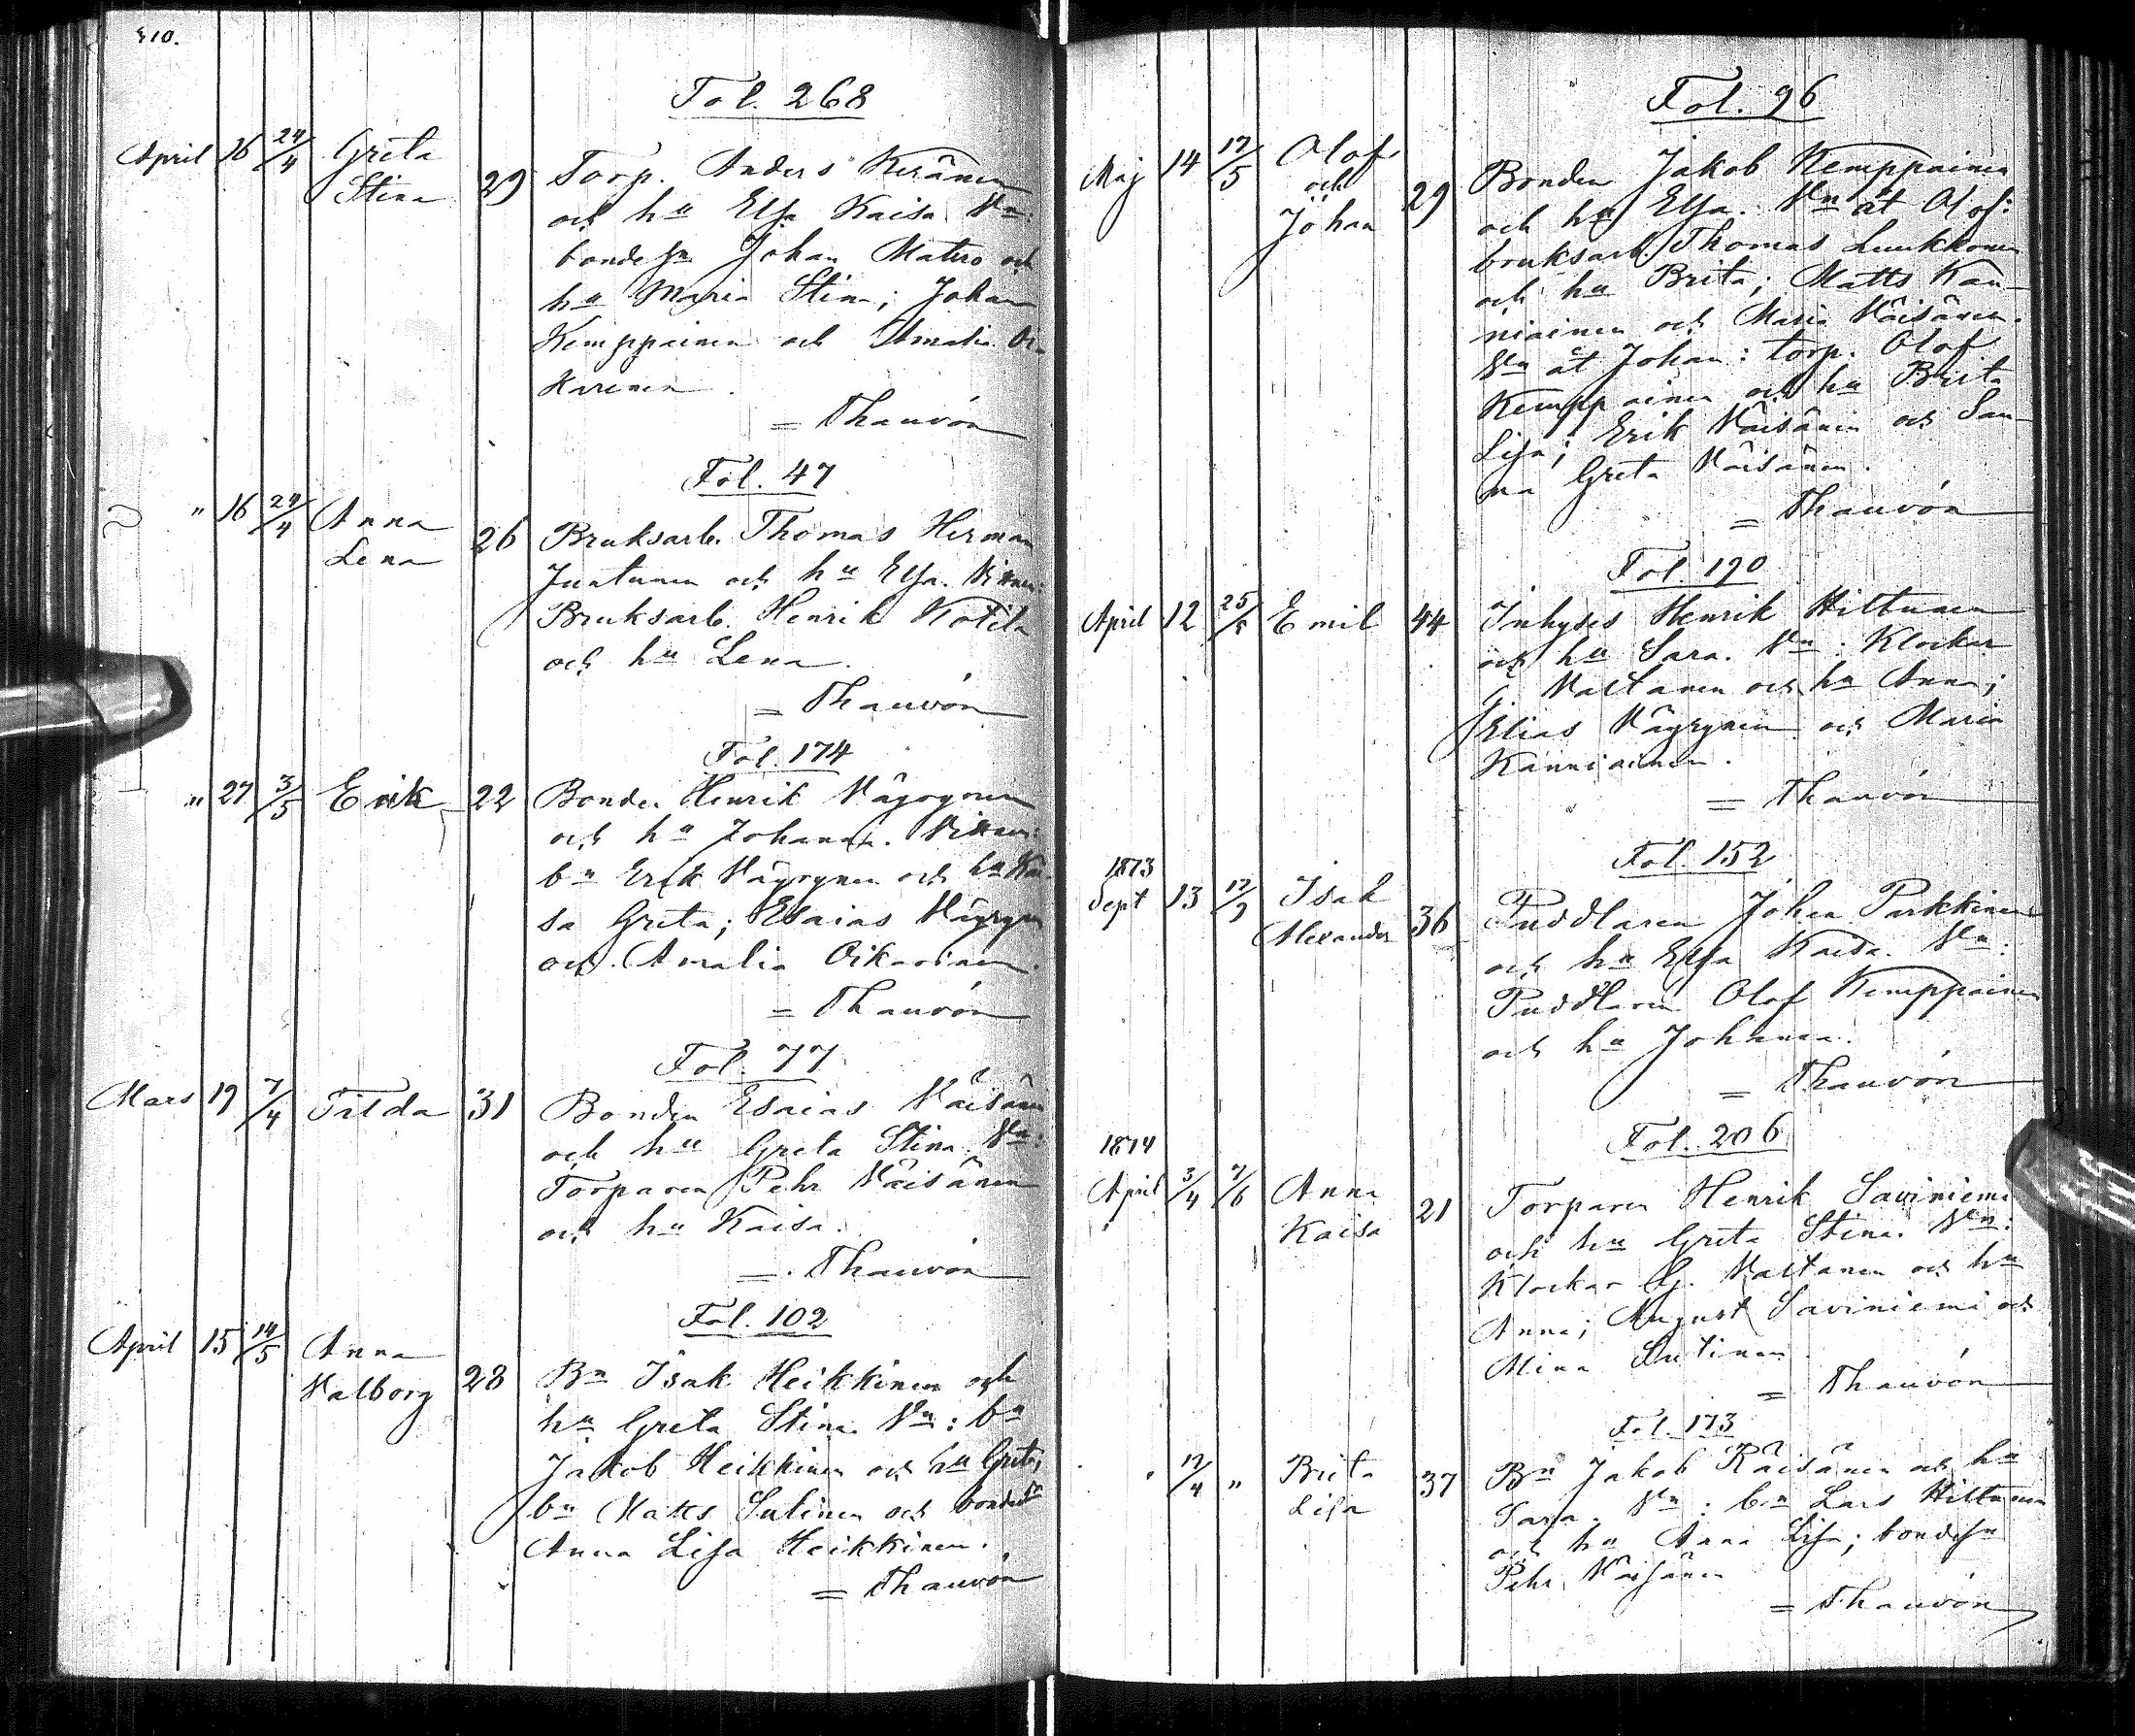 410.
Fol. 268
April 16 24/4 Greta Stina 29 Torp. Anders Keränen
och hu Elsa Kaisa. Vn:
bondesn Johan Matero och
hu Maria Stina; Johan
Kemppainen och Amalia Oi-
karinen.
= Thauvón
Fol. 47
" 16 24/4 Anna Lena 26 Bruksarb. Thomas Herman
Juntunen och hu Elsa. Vittnen:
Bruksarb. Henrik Kotila
och hu Lena.
= Thauvón
Fol. 174
" 27 3/5 Erik 22 Bonden Henrik Väyrynen
och hu Johanna. Vittnen:
bn Erik Väyrynen och hu Kai-
sa Greta; Esaias Väyrynen
och Amalia Oikarinen.
= Thauvón
Fol. 77
Mars 19 7/4 Tilda 31 Bonden Esaias Väisänen
och hu Greta Stina. Vn:
Torparen Pehr Väisänen
och hu Kaisa.
= Thauvón
Fol. 102
April 15 14/5 Anna Valborg 28 Bn Isak Heikkinen och
hu Greta Stina. Vn: bn
Jakob Heikkinen och hu Greta;
bn Matts Sutinen och
Anna Lisa Heikkinen.
= Thauvón
Fol. 96
Maj 14 17/5 Olof och Johan 29 Bonden Jakob Kemppainen
och hu Elsa. Vn åt Olof:
bruksarb. Thomas Luukkonen
och hu Brita; Matts Kan-
niainen och Maria Väisänen.
Vn åt Johan: torp. Olof
Kemppainen och hu Brita
Lisa; Erik Väisänen och San-
na Greta Väisänen.
= Thauvón
Fol. 190
April 12 25/5 Emil 44 Inhyses Henrik Hiltunen
och hu Sara. Vn: Klockar
G. Vartanen och hu Anna;
Elias Väyrynen och Maria
Kanniainen.
= Thauvón
Fol. 152
1873
Sept 13 17/9 Isak Alexander 36 Puddlaren Johan Parkkinen
och hu Elsa Kaisa. Vn:
Puddlaren Olof Kemppainen
och hu Johanna.
= Thauvón
Fol. 206
1874
April 3/4 7/6 Anna Kaisa 21 Torparen Henrik Saviniemi
och hu Greta Stina. Vn:
Klockar G. Vartanen och hu
Anna; August Saviniemi och
Mina Sutinen.
= Thauvón
Fol. 173
" 17/4 " Brita Lisa 37 Bn Jakob Räisänen och hu
Sara. Vn: bn Lars Hiltunen
och hu Anna Lisa; bondesn
Pehr Väisänen
= Thauvón